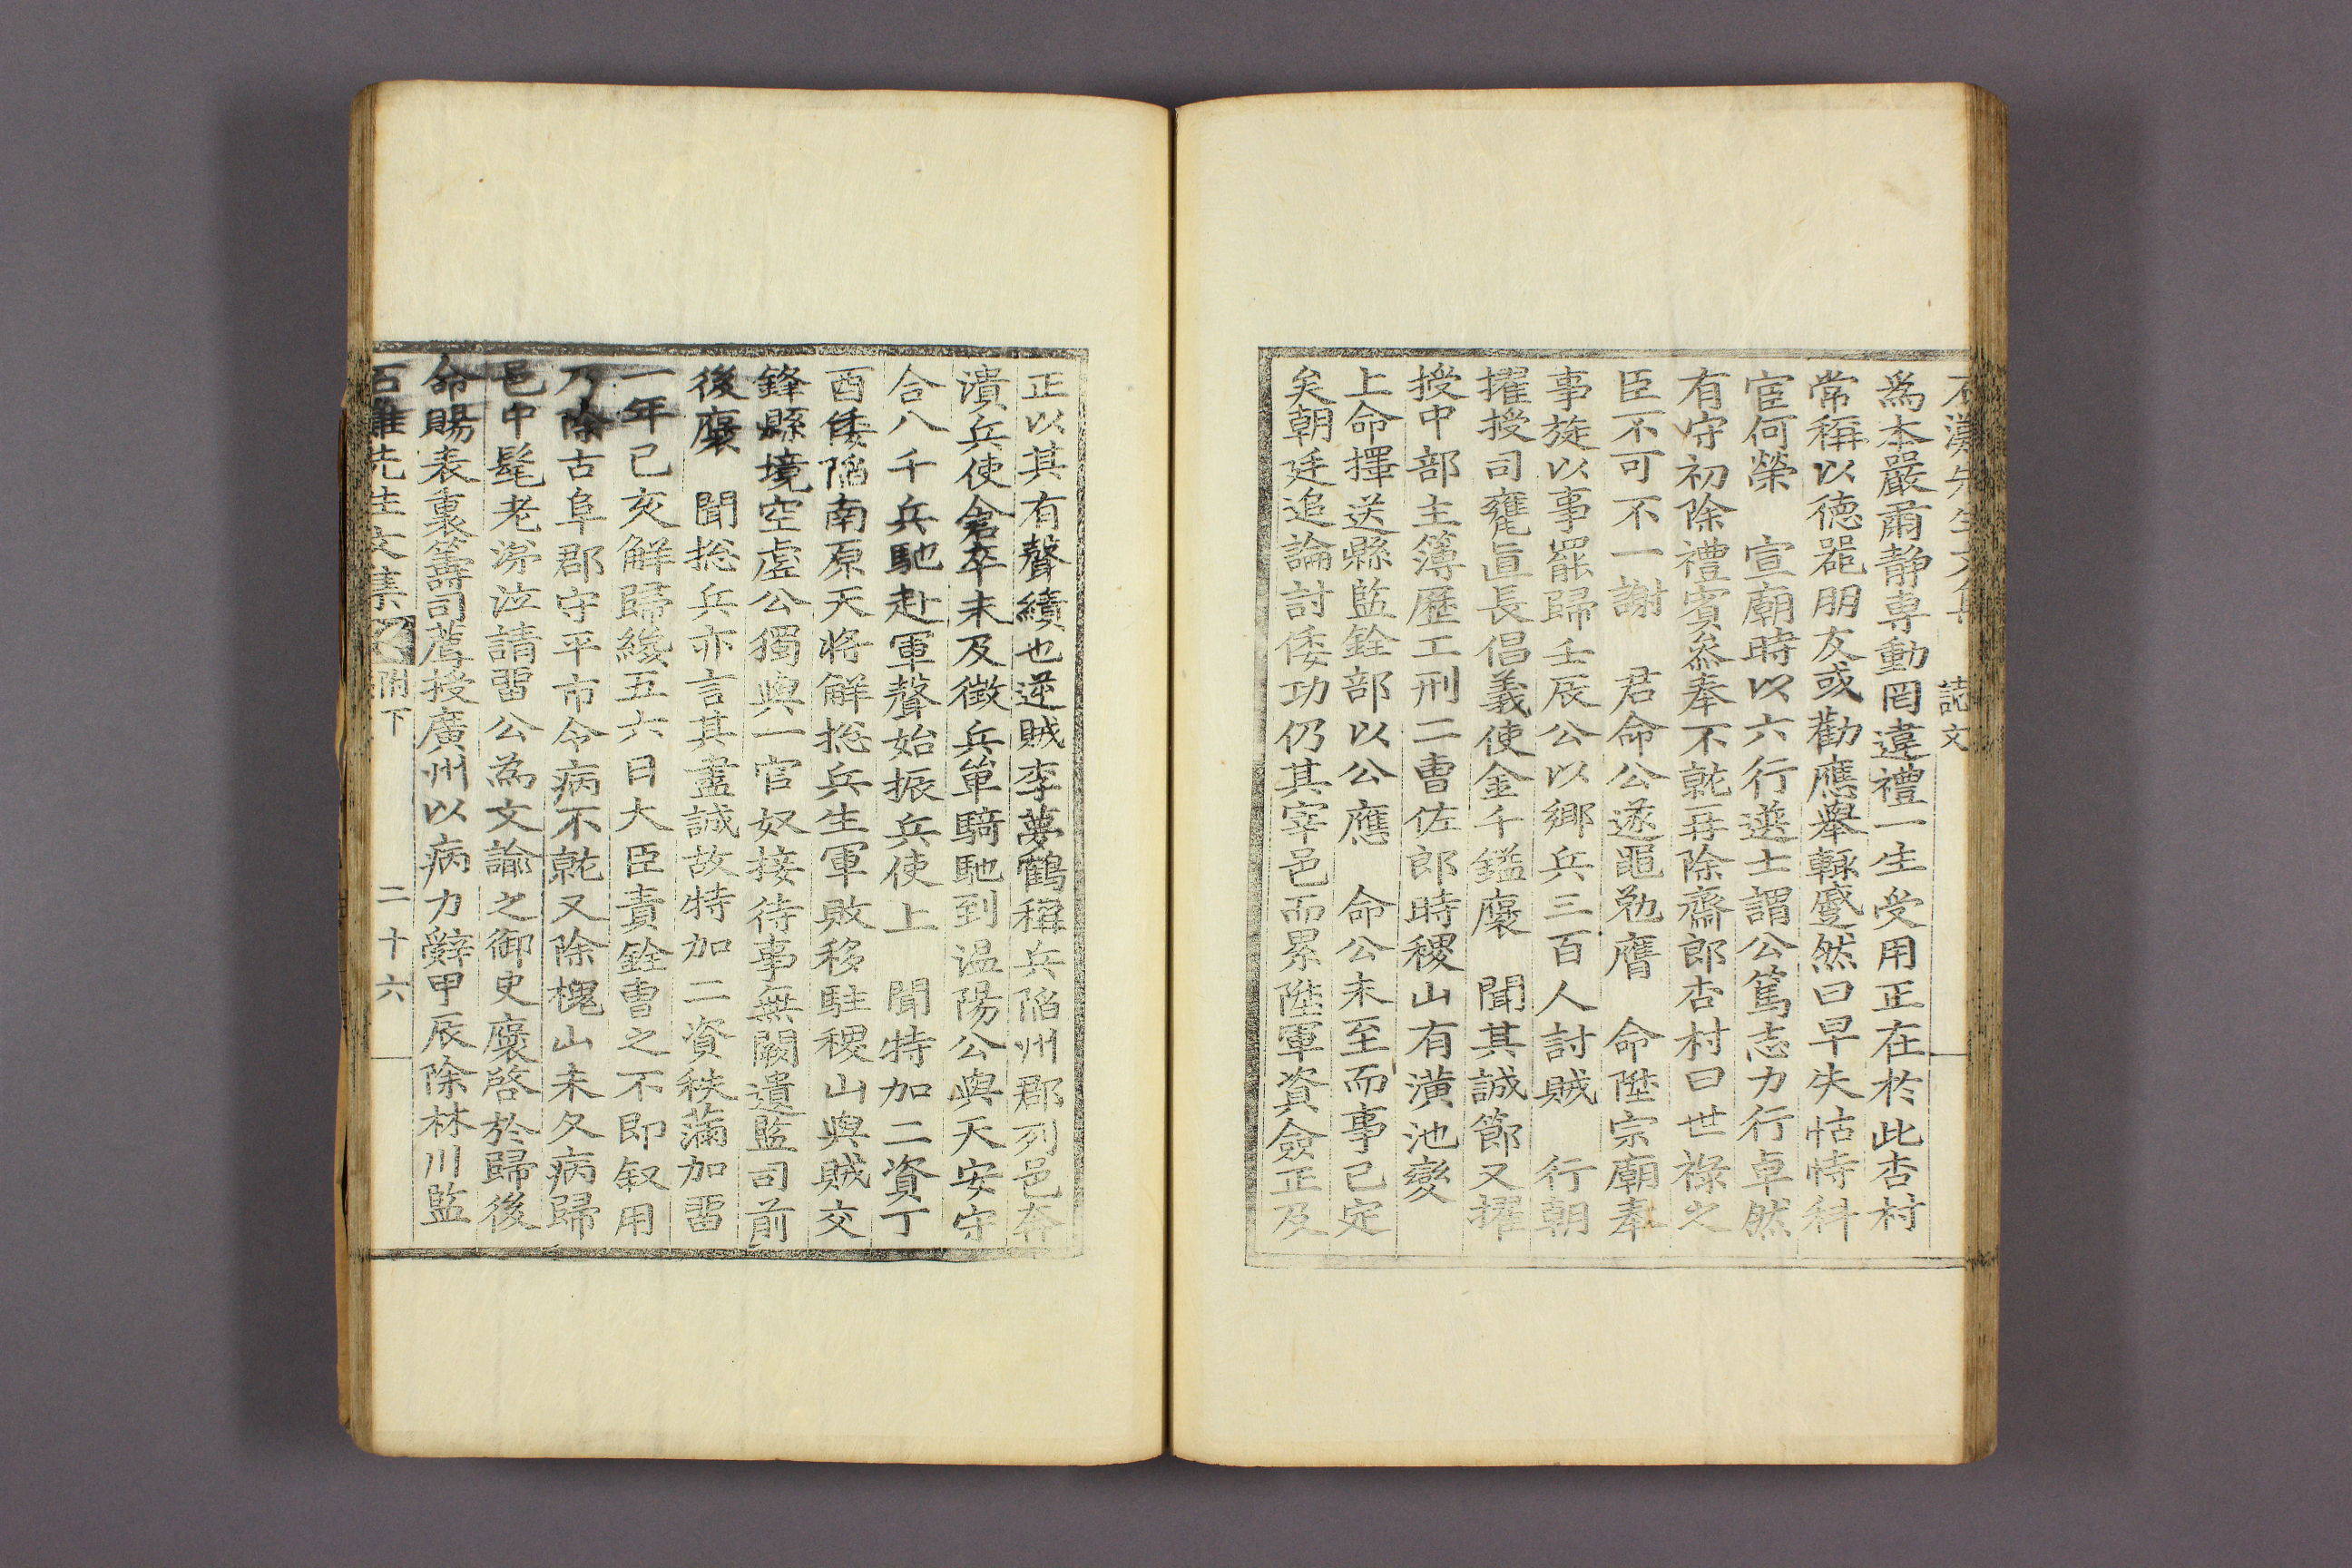 誌文
爲本嚴肅静專動罔違禮一生受用正在於此杏村
常稱以德器朋友或勸應舉輒蹙然曰早失怙恃科
宦何榮 宣廟時以六行選士謂公篤志力行卓然
有守初除禮賓叅奉不就再除齋郎杏村曰世祿之
臣不可不一謝 君命公遂黽勉膺 命陞宗廟奉
事旋以事罷歸壬辰公以鄉兵三百人討賊 行朝
擢授司饔直長倡義使金千鎰褒 聞其誠節又擢
授中部主簿歷工刑二曹佐郎時稷山有潢池變
上命擇送縣監銓部以公應 命公未至而事已定
矣朝廷追論討倭功仍其宰邑而累陞軍資僉正及
正以其有聲績也逆賊李夢鶴稱兵陷州郡列邑奔
潰兵使倉卒未及徵兵單騎馳到温陽公與天安守
合八千兵馳赴軍聲始振兵使上 聞特加二資丁
酉倭陷南原天將解摠兵生軍敗移駐稷山與賊交
鋒縣境空虛公獨與一官奴接待事無闕遺監司前
後褒 聞摠兵亦言其盡誠故特加二資秩滿加畱
一年已亥解歸纔五六日大臣責銓曹之不即叙用
乃除古阜郡守平市令病不就又除槐山未久病歸
邑中髦老涕泣請畱公為文諭之御史褒啓於歸後
命賜表裏籌司薦授廣州以病力辭甲辰除林川監
先生文集 附下 二十六